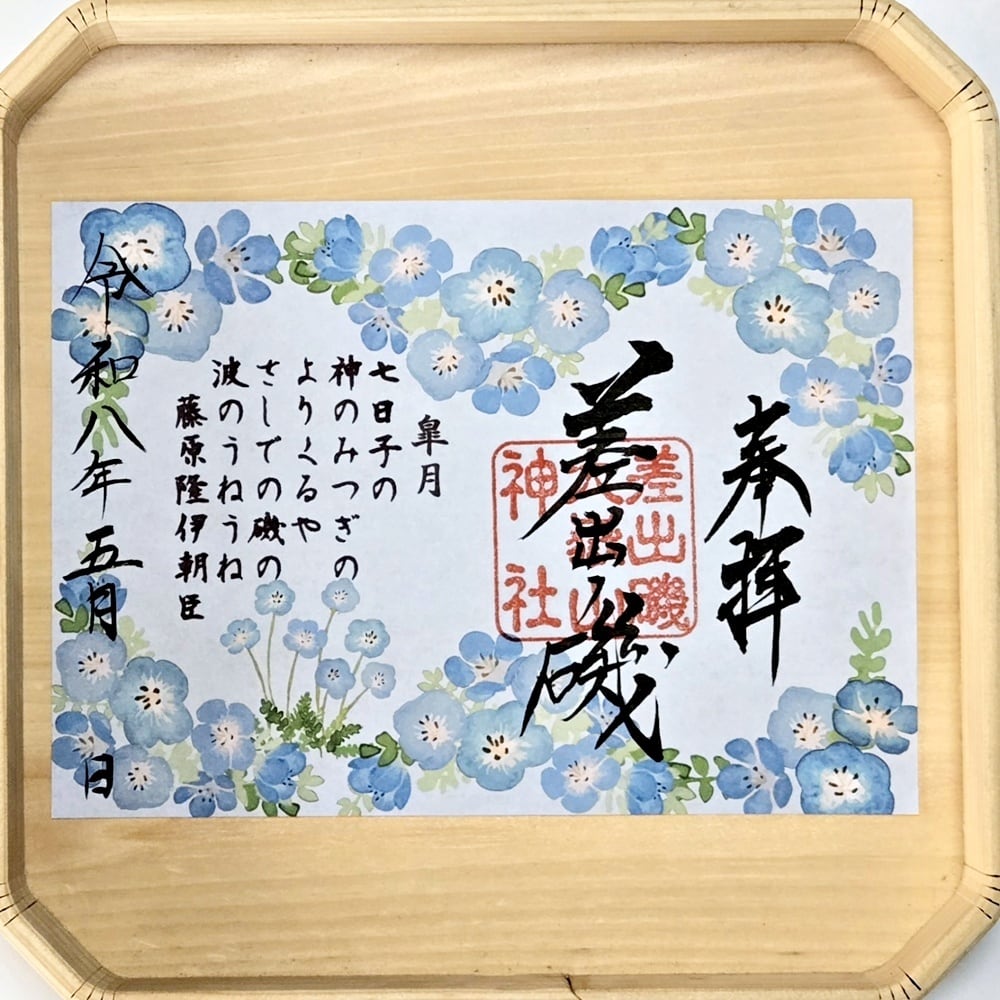 奉拝
差出磯
差出磯
大嶽山
神社
皐月
七日子の
神のみつぎの
よりくるや
さしでの磯の
波のうねうね
藤原隆伊朝臣
令和八年五月 日